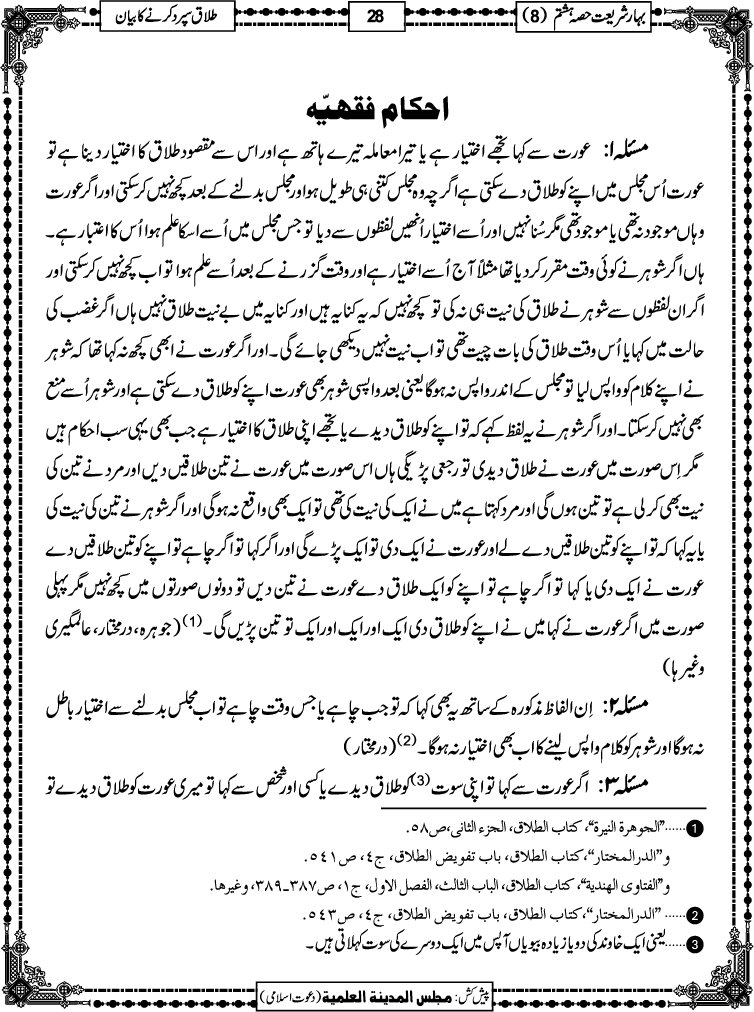 بہارِ شریعت حصہ ہشتم (8)
28
طلاق سپرد کرنے کا بیان
احکام فقہیّہ
مسئلہ ۱: عورت سے کہا تجھے اختیار ہے یا تیرا معاملہ تیرے ہاتھ ہے اور اس سے مقصود طلاق کا اختیار دینا ہے تو
عورت اُس مجلس میں اپنے کو طلاق دے سکتی ہے اگرچہ وہ مجلس کتنی ہی طویل ہو اور مجلس بدلنے کے بعد کچھ نہیں کرسکتی اور اگر عورت
وہاں موجود نہ تھی یا موجود تھی مگر سُنا نہیں اور اُسے اختیار اُنھیں لفظوں سے دیا تو جس مجلس میں اُسے اسکا علم ہوا اُس کا اعتبار ہے۔
ہاں اگر شوہر نے کوئی وقت مقرر کر دیا تھا مثلاً آج اُسے اختیار ہے اور وقت گزرنے کے بعد اُسے علم ہوا تو اب کچھ نہیں کرسکتی اور
اگر ان لفظوں سے شوہر نے طلاق کی نیت ہی نہ کی تو کچھ نہیں کہ یہ کنایہ ہیں اور کنایہ میں بے نیت طلاق نہیں ہاں اگر غضب کی
حالت میں کہا یا اُس وقت طلاق کی بات چیت تھی تو اب نیت نہیں دیکھی جائے گی۔ اور اگر عورت نے ابھی کچھ نہ کہا تھا کہ شوہر
نے اپنے کلام کو واپس لیا تو مجلس کے اندر واپس نہ ہوگا یعنی بعد واپسی شوہر بھی عورت اپنے کو طلاق دے سکتی ہے اور شوہر اُسے منع
بھی نہیں کرسکتا۔ اور اگر شوہر نے یہ لفظ کہے کہ تو اپنے کو طلاق دیدے یا تجھے اپنی طلاق کا اختیار ہے جب بھی یہی سب احکام ہیں
مگر اِس صورت میں عورت نے طلاق دیدی تو رجعی پڑیگی ہاں اس صورت میں عورت نے تین طلاقیں دیں اور مرد نے تین کی
نیت بھی کرلی ہے تو تین ہوں گی اور مرد کہتا ہے میں نے ایک کی نیت کی تھی تو ایک بھی واقع نہ ہوگی اور اگر شوہر نے تین کی نیت کی
یا یہ کہا کہ تو اپنے کو تین طلاقیں دے لے اور عورت نے ایک دی تو ایک پڑے گی اور اگر کہا تو اگر چاہے تو اپنے کو تین طلاقیں دے
عورت نے ایک دی یا کہا تو اگر چاہے تو اپنے کو ایک طلاق دے عورت نے تین دیں تو دونوں صورتوں میں کچھ نہیں مگر پہلی
صورت میں اگر عورت نے کہا میں نے اپنے کو طلاق دی ایک اور ایک اور ایک تو تین پڑیں گی۔ (1) (جوہرہ، درمختار، عالمگیری
وغیرہا)
مسئلہ ۲: اِن الفاظ مذکورہ کے ساتھ یہ بھی کہا کہ تو جب چاہے یا جس وقت چاہے تو اب مجلس بدلنے سے اختیار باطل
نہ ہوگا اور شوہر کو کلام واپس لینے کا اب بھی اختیار نہ ہوگا۔ (2) (درمختار)
مسئلہ ۳: اگر عورت سے کہا تو اپنی سوت (3) کو طلاق دیدے یا کسی اور شخص سے کہا تو میری عورت کو طلاق دیدے تو
1 ......"الجوهرة النيرة"، كتاب الطلاق، الجزء الثانی،ص٥٨.
و"الدرالمختار"،كتاب الطلاق، باب تفويض الطلاق، ج٤، ص٥٤١.
و"الفتاوى الهندية"، كتاب الطلاق، الباب الثالث، الفصل الاول، ج١، ص٣٨٧ـ٣٨٩، وغيرها.
2 ...... "الدرالمختار"،كتاب الطلاق، باب تفويض الطلاق، ج٤، ص٥٤٣.
3 ......یعنی ایک خاوند کی دو یا زیادہ بیویاں آپس میں ایک دوسرے کی سوت کہلاتی ہیں۔
پیش کش: مجلس المدینة العلمیة (دعوت اسلامی)